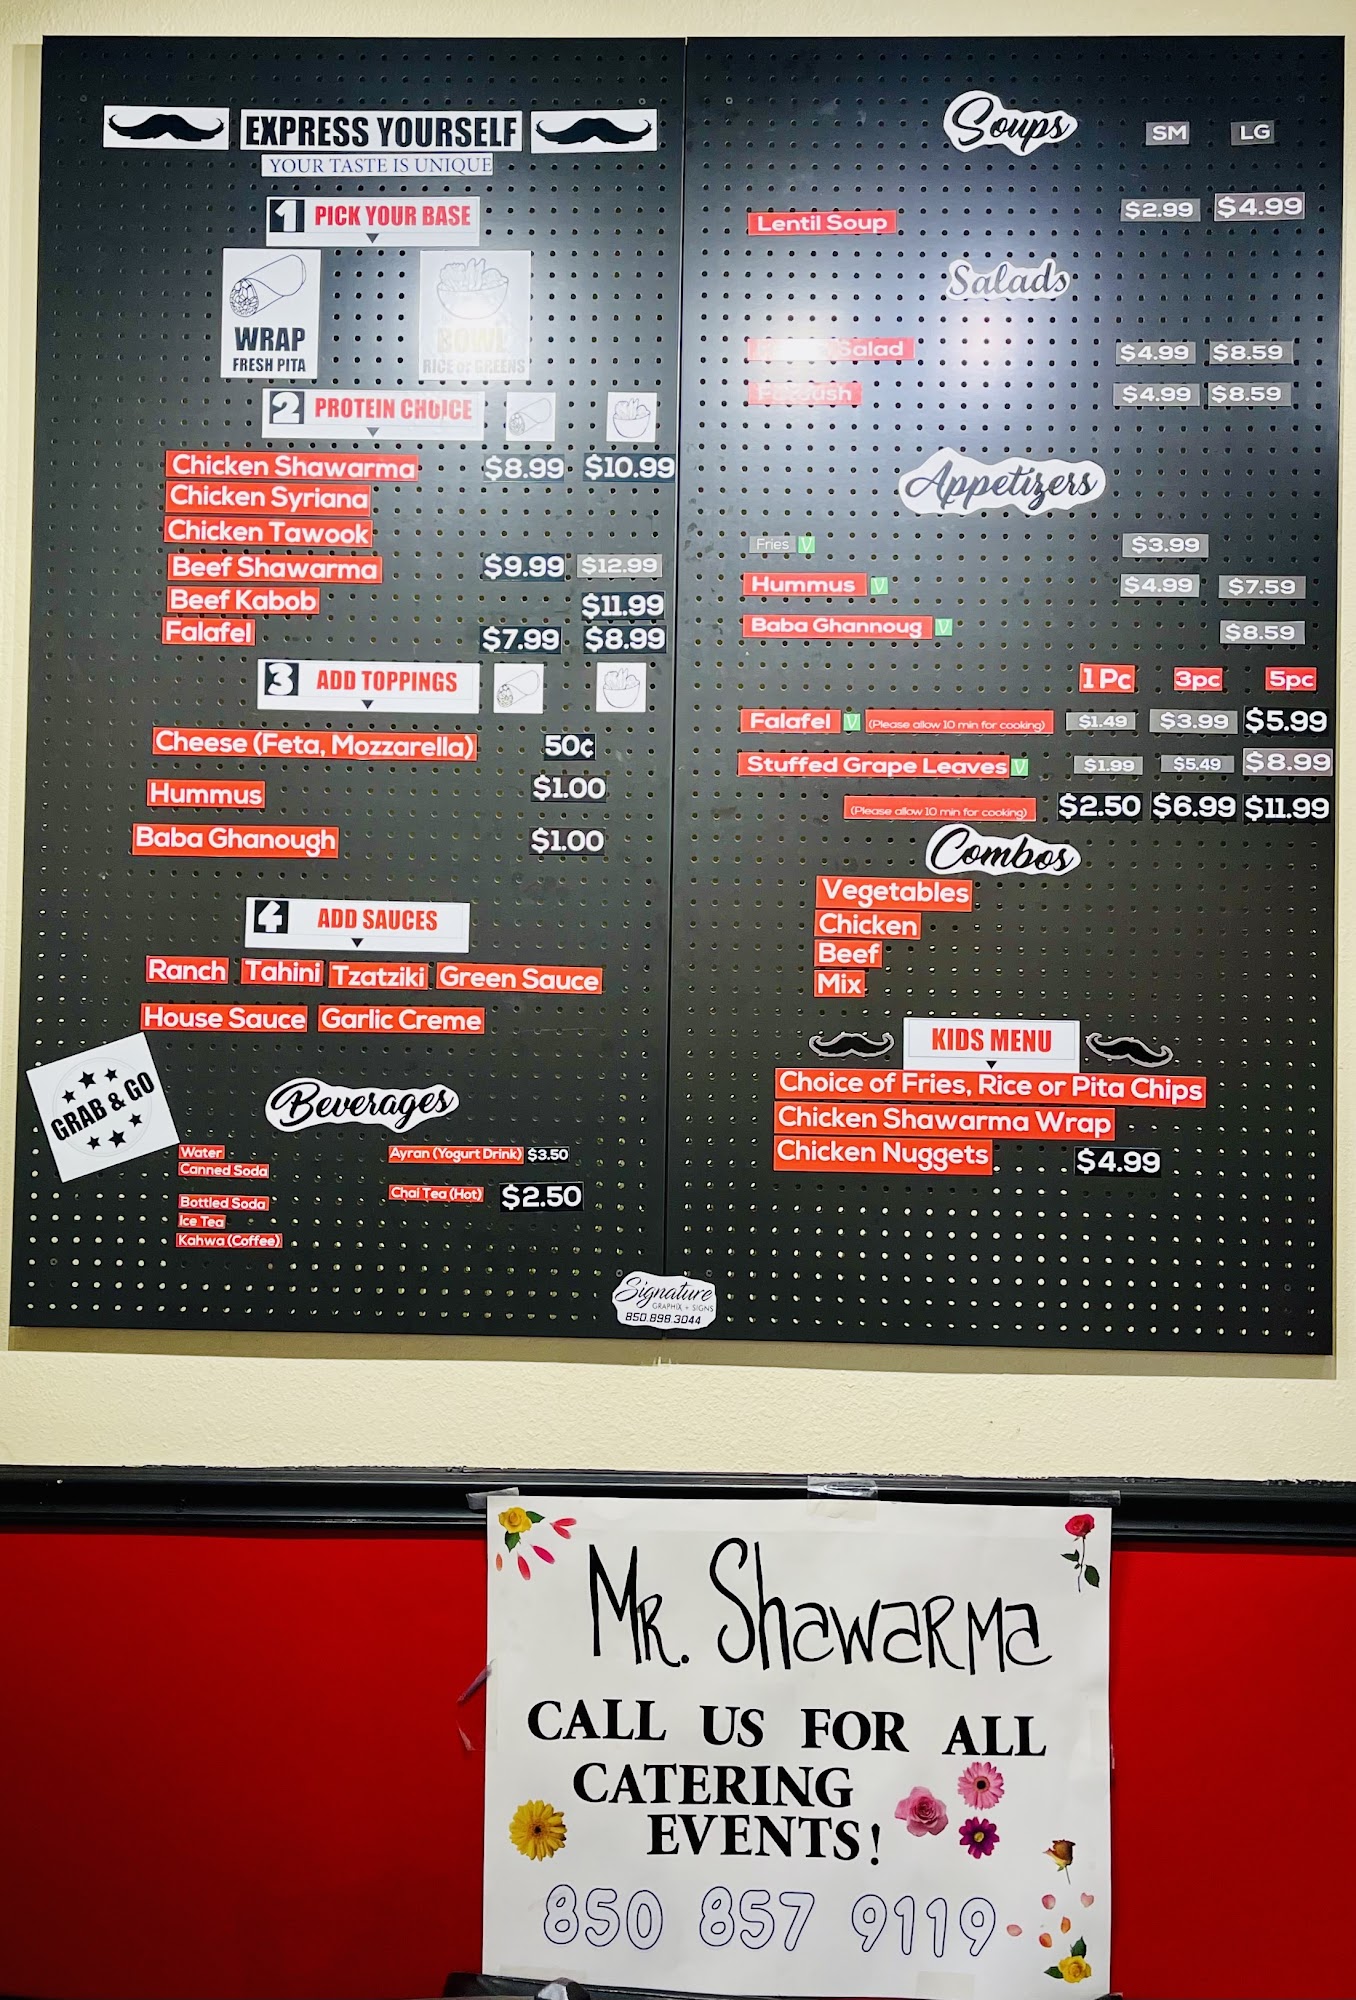 EXPRESS YOURSELF
YOUR TASTE IS UNIQUE
1 PICK YOUR BASE
WRAP
FRESH PITA
BOWL
RICE or GREENS
2 PROTEIN CHOICE
Chicken Shawarma $8.99 $10.99
Chicken Syriana
Chicken Tawook
Beef Shawarma $9.99 $12.99
Beef Kabob $11.99
Falafel $7.99 $8.99
3 ADD TOPPINGS
Cheese (Feta, Mozzarella) 50¢
Hummus $1.00
Baba Ghanough $1.00
4 ADD SAUCES
Ranch Tahini Tzatziki Green Sauce
House Sauce Garlic Creme
GRAB & GO
Beverages
Water
Canned Soda
Bottled Soda
Ice Tea
Kahwa (Coffee)
Ayran (Yogurt Drink) $3.50
Chai Tea (Hot) $2.50
Soups SM LG
Lentil Soup $2.99 $4.99
Salads
Salad $4.99 $8.59
$4.99 $8.59
Appetizers
Fries V $3.99
Hummus V $4.99 $7.59
Baba Ghannoug V $8.59
1 Pc 3pc 5pc
Falafel V (Please allow 10 min for cooking) $1.49 $3.99 $5.99
Stuffed Grape Leaves V $1.99 $5.49 $8.99
(Please allow 10 min for cooking) $2.50 $6.99 $11.99
Combos
Vegetables
Chicken
Beef
Mix
KIDS MENU
Choice of Fries, Rice or Pita Chips
Chicken Shawarma Wrap
Chicken Nuggets $4.99
Signature
GRAPHIX + SIGNS
850.898.3044
Mr. Shawarma
CALL US FOR ALL
CATERING
EVENTS!
850 857 9119